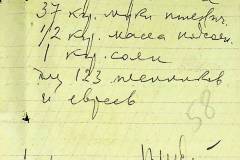 37 кгр. муки пшенич.
1/2 кгр. масла подсол.
1 кгр. соли
для 123 пленников
и евреев
58